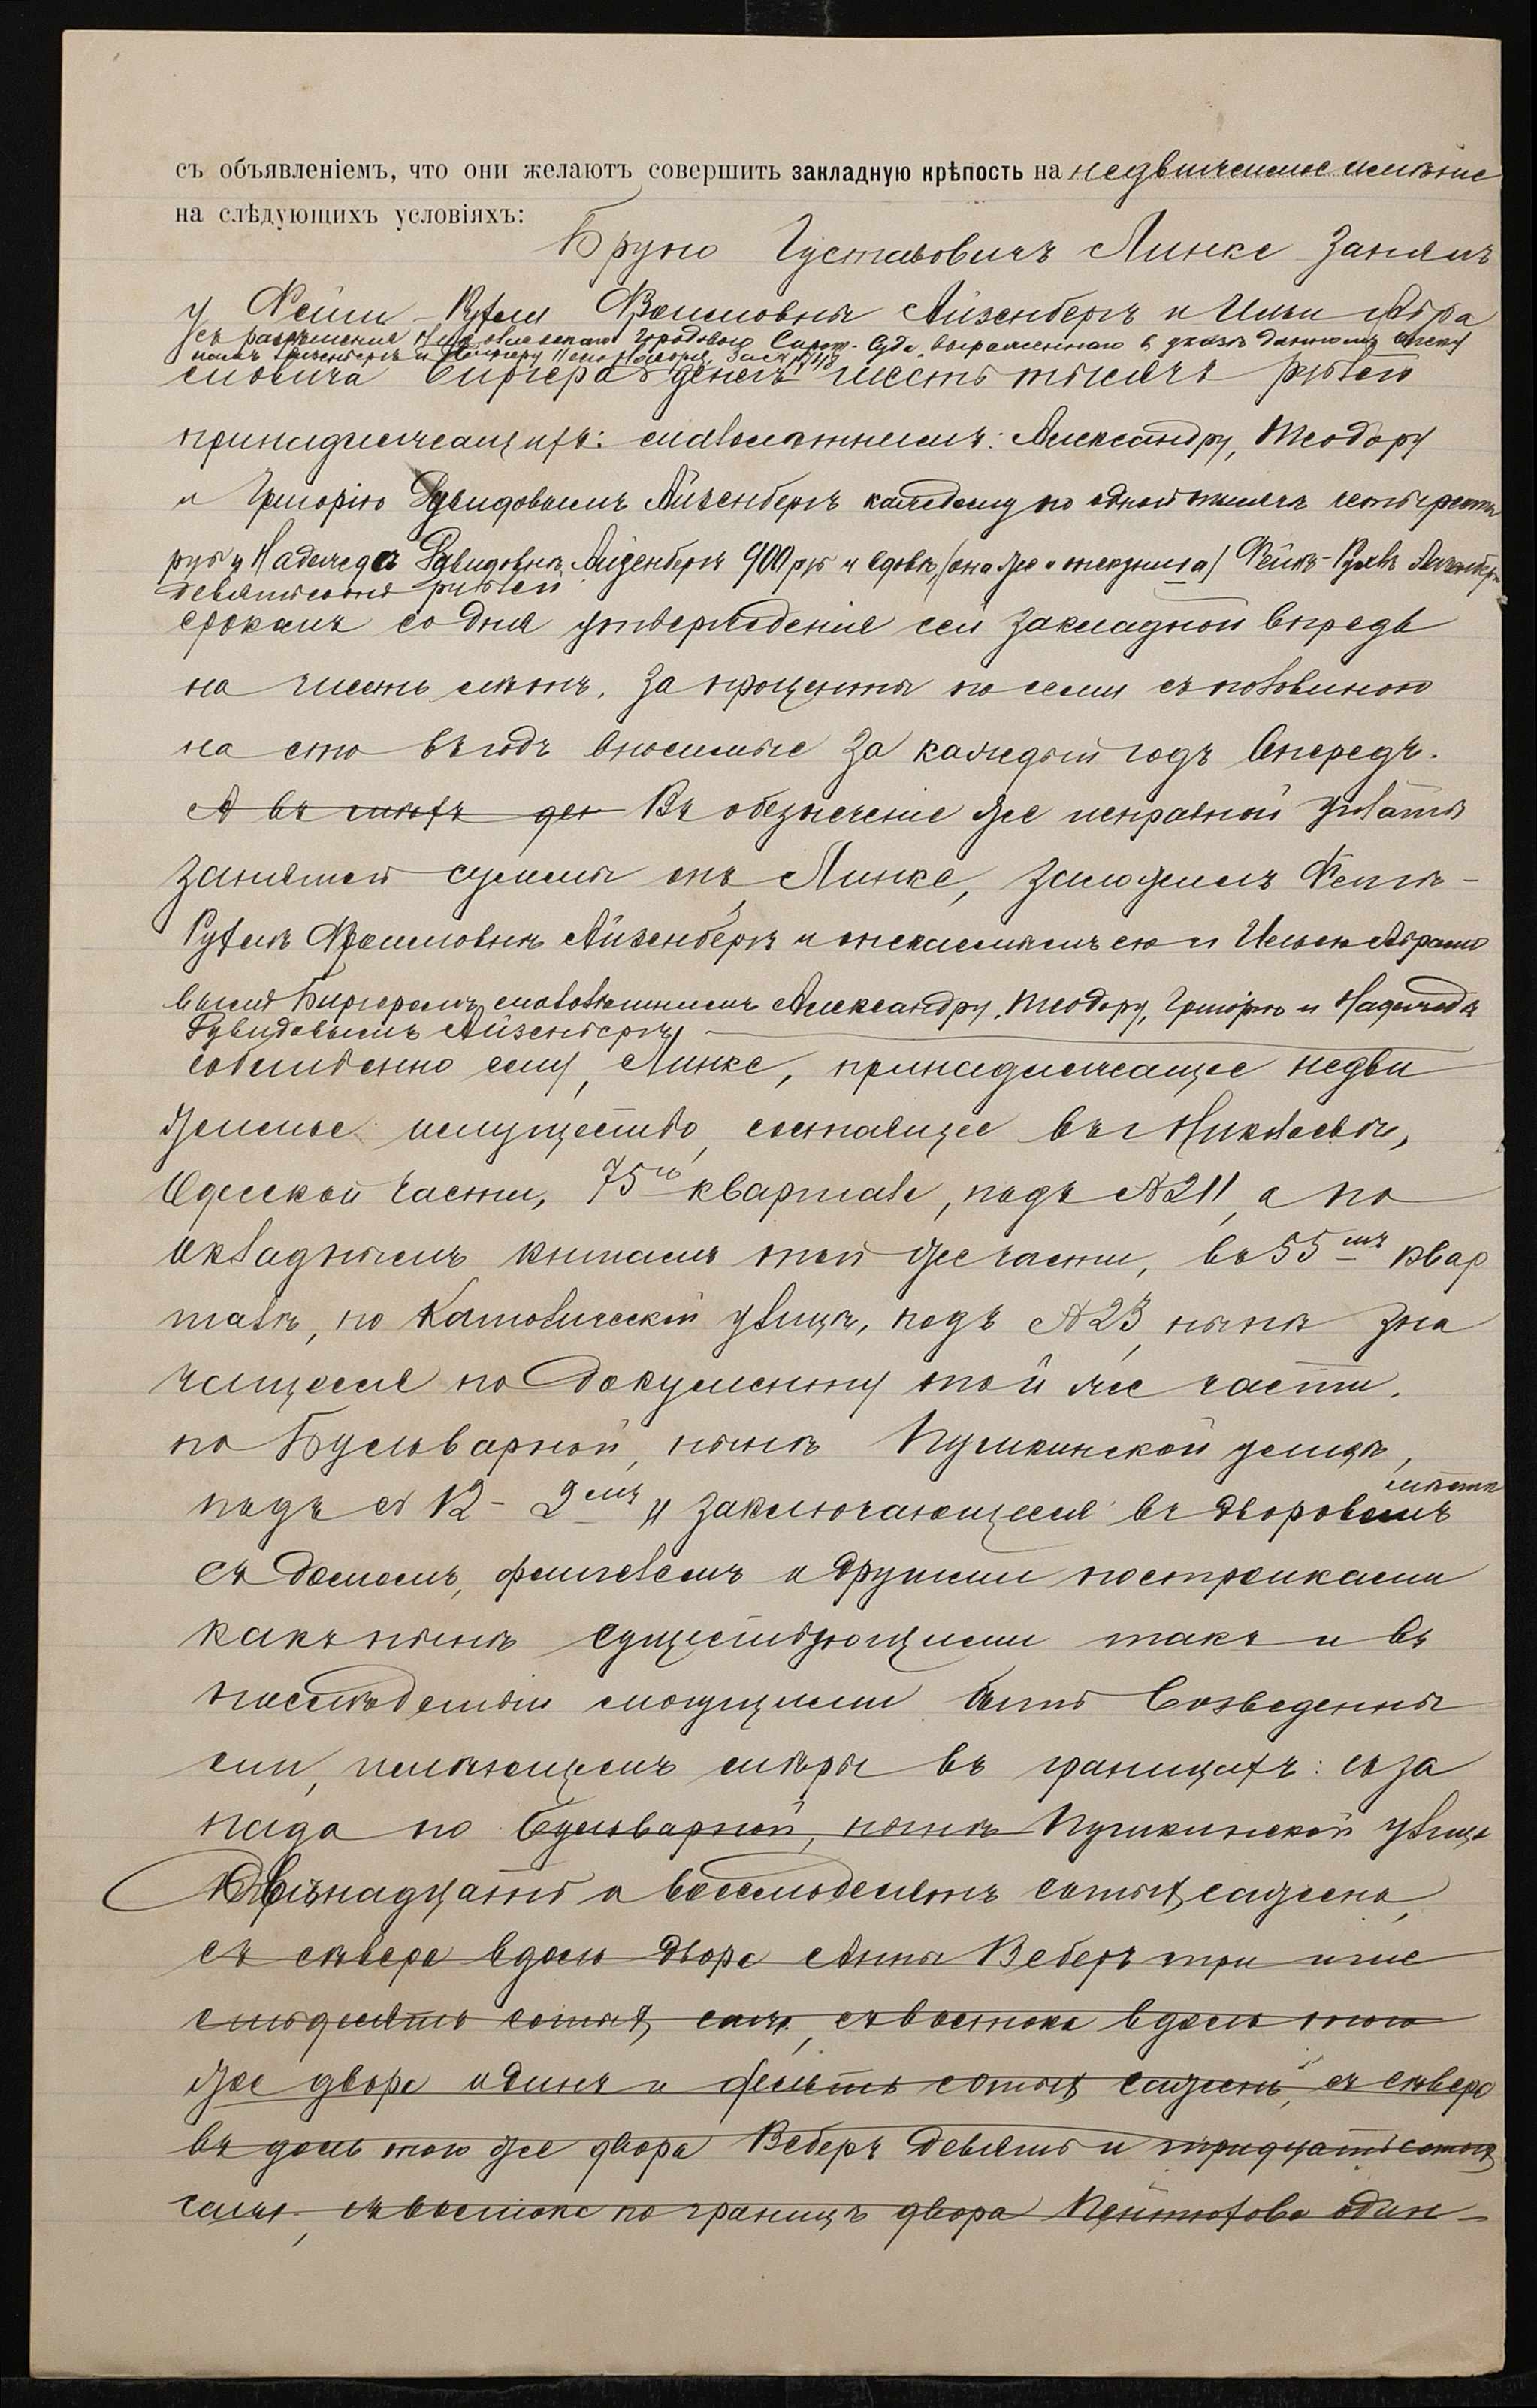 съ объявленіемъ, что они желаютъ совершить закладную крѣпость на недвижимое имѣніе
на слѣдующихъ условіяхъ:
Бруно Густавовичъ Линке занялъ
у Фейги-Рухли Фроимовны Айзенбергъ и Ильи Абра
съ разрѣшенія Николаевскаго Городового Сирот. Суда, выраженнаго в указѣ данномъ опеку
намъ Айзенбергъ и Биргеру
мовича Биргера денегъ шесть тысячъ рублей
принадлежащихъ: малолѣтнимъ: Александру, Теодору
и Григорію Давидовымъ Айзенбергъ каждому по одной тысячѣ четыреста
руб и Надеждѣ Давидовнѣ Айзенбергъ 900 руб и вдовѣ, (она же и опекунша) Фейгѣ-Рухлѣ Айзенбергъ
девятьсотъ рублей
срокомъ со дня утвержденія сей закладной впредь
на шесть лѣтъ, за проценты по семи съ половиною
на сто въ годъ вносимые за каждый годъ впередъ.
А въ сихъ ден Въ обезпеченіе же исправной уплаты
занятой суммы онъ, Линке, заложилъ Фейгѣ-
Рухлѣ Фроимовнѣ Айзенбергъ и опекаемымъ ею и Ильею Абрамо
вымъ Биргеромъ малолѣтнимъ Александру, Теодору, Григорію и Надеждѣ
Давидовымъ Айзенбергъ
собственно ему, Линке, принадлежащее недви
жимое имущество, состоящее въ г Николаевѣ,
Одесской части, 75го квартала, подъ № 211, а по
окладнымъ книгамъ той же части, въ 55мъ квар
талѣ, по Католической улицѣ, подъ № 23, нынѣ зна
чащееся по документу той же части,
по Бульварной, нынѣ Пушкинской улицѣ,
подъ № 12-2мъ и заключающееся въ дворовомъ мѣстѣ
съ домомъ, флигелемъ и другими постройками
какъ нынѣ существующими такъ и въ
послѣдствіи могущими быть возведенны
ми, имѣющемъ мѣры въ границахъ: съ за
пада по Бульварной, нынѣ Пушкинской улицѣ
двѣнадцать и восемьдесятъ сотыхъ сажена,
съ сѣвера вдоль двора Анны Веберъ три и ше
стьдесятъ сотыхъ саж., съ востока вдоль того
же двора одинъ и десять сотыхъ сажень, съ сѣвера
въ доль того же двора Веберъ девять и тридцать сотыхъ
саж., съ востока по границѣ двора один-